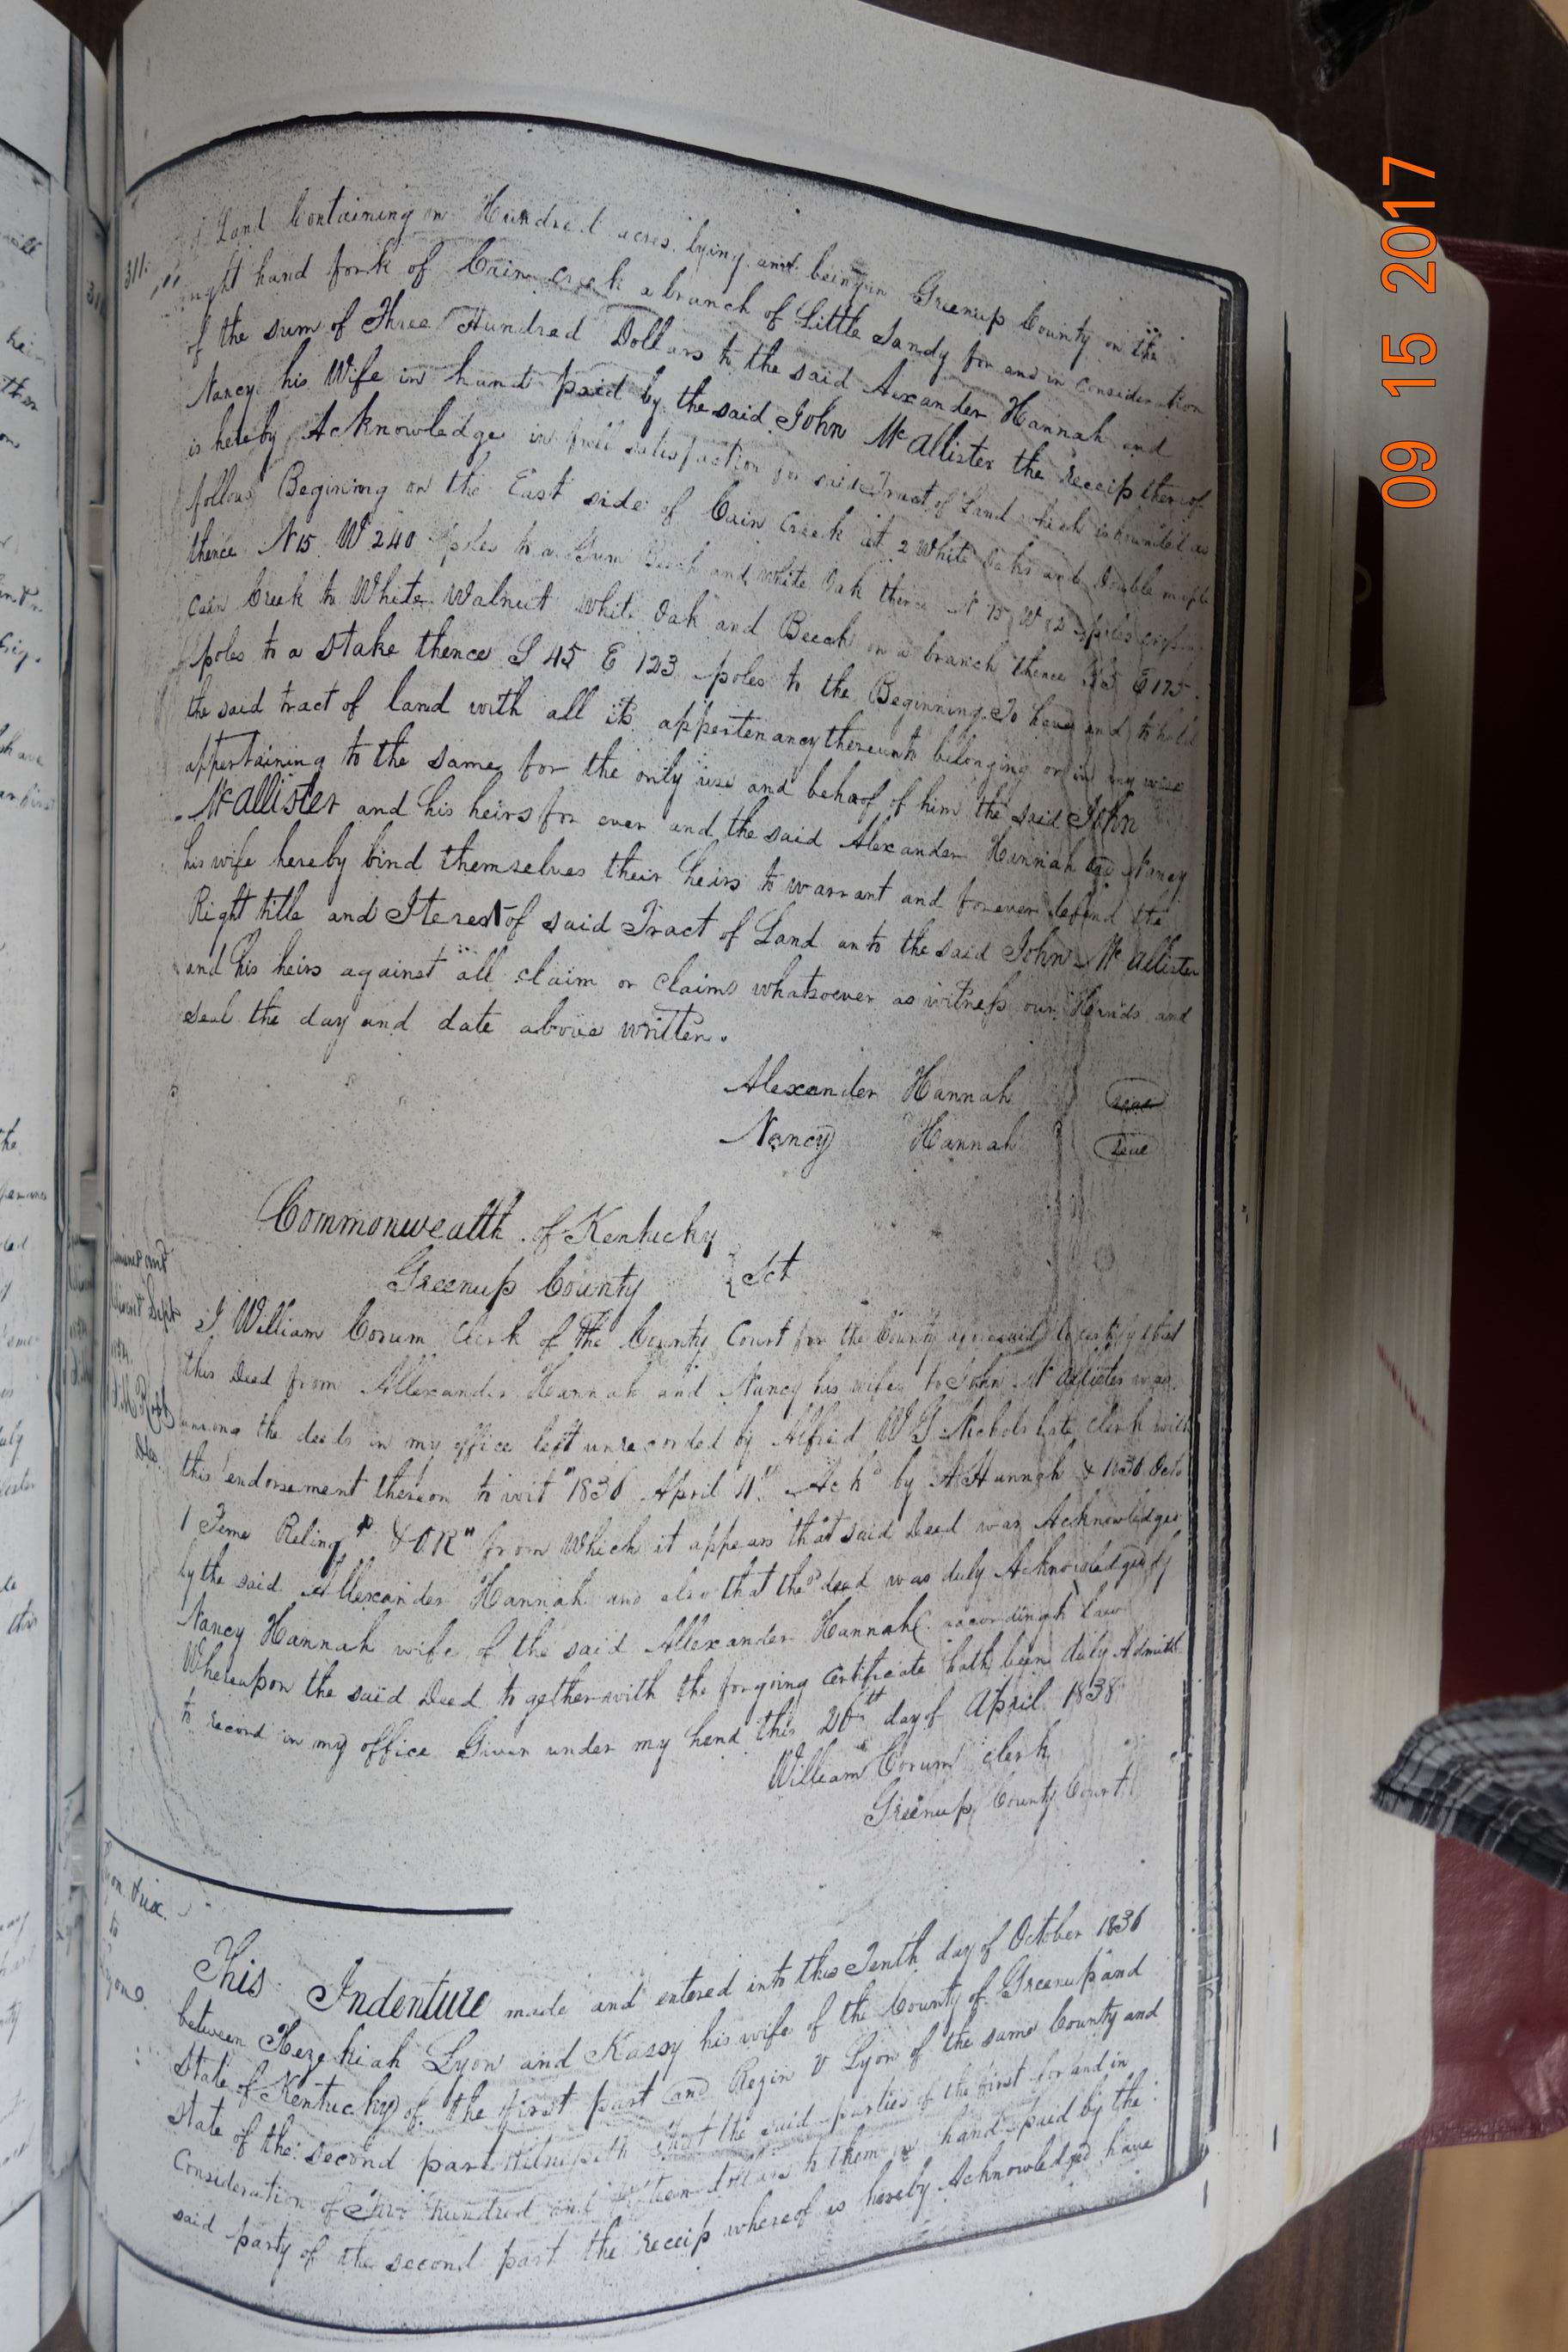 311.
Land Containing on Hundred acres lying and being in Greenup County on the
right hand fork of Cain creek a branch of Little Sandy for and in consideration
of the sum of Three Hundred Dollars to the said Alexander Hannah and
Nancy his Wife in hand paid by the said John McAllister the receip thereof
is hereby Acknowledge in full satisfaction for said Tract of Land which is bounded as
follows Begining on the East side of Cain Creek at 2 White Oaks and Double maple
thence N 15 W 240 poles to a Gum Beech and White Oak thence N 75 W poles
Cain Creek to White Walnut White Oak and Beech on a branch thence E 175
poles to a Stake thence S 45 E 123 poles to the Beginning To have and to hold
the said tract of land with all its appertenancy thereunto belonging or in any wise
appertaining to the same for the only use and behoof of him the said John
McAllister and his heirs for ever and the said Alexander Hannah and Nancy
his wife hereby bind themselves their heirs to warrant and forever defend the
Right title and Iterest of said Tract of Land unto the said John McAllister
and his heirs against all claim or claims whatsoever as witness our Hands and
Seal the day and date above written.
Alexander Hannah Seal
Nancy Hannah Seal
Commonwealth of Kentucky
Greenup County } Sct
I William Corum Clerk of the County Court for the County aforesaid do certify that
this Deed from Allexander Hannah and Nancy his wife to John McAllister was
among the deeds in my office left unrecorded by Alfred W G Nichols late Clerk with
this endorsement thereon to wit "1836 April 11th Ackd by A Hannah & 1836 Octo
1 Feme Relingd & OR" from Which it appears that said Deed was Acknowledged
by the said Allexander Hannah and also that the sd deed was duly Acknowledged by
Nancy Hannah wife of the said Allexander Hannah according to Law
Whereupon the said Deed together with the forgoing Certificate hath been duly Admitt
to record in my office Given under my hand this 26th day of April 1838
William Corum Clerk
Greenup County Court
Lyon & ux.
to
Lyon
This Indenture made and entered into this Tenth day of October 1836
between Hezekiah Lyon and Kassy his wife of the County of Greenup and
State of Kentucky of the first part and Regin V Lyon of the same County and
State of the second part Witnesseth that the said parties of the first for and in
Consideration of hundred and dollars to them in hand paid by the
said party of the second part the receip whereof is hereby Acknowledged have
09 15 2017